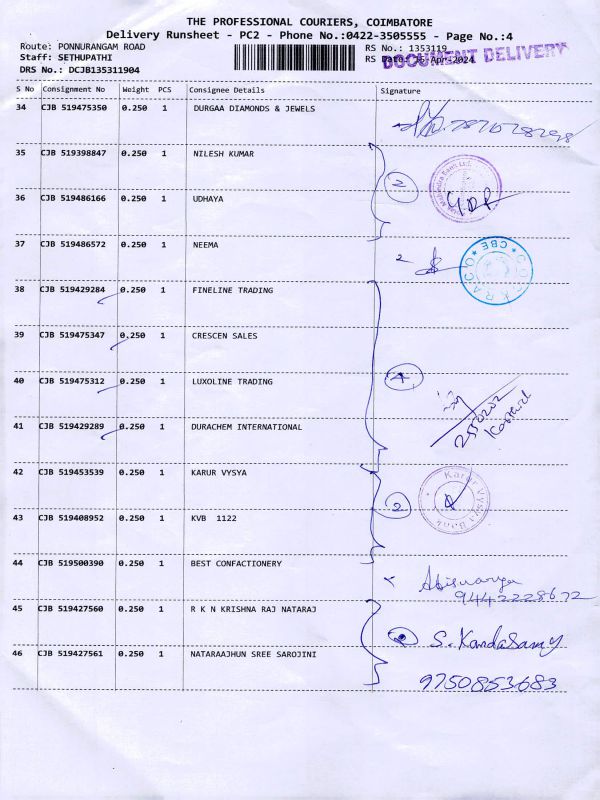 THE PROFESSIONAL COURIERS, COIMBATORE
Delivery Runsheet - PC2 - Phone No.:0422-3505555 - Page No.:4
Route: PONNURANGAM ROAD RS No.: 1353119
Staff: SETHUPATHI RS Date: 15-Apr-2024
DOCUMENT DELIVERY
DRS No.: DCJB135311904
S No Consignment No Weight PCS Consignee Details Signature
34 CJB 519475350 0.250 1 DURGAA DIAMONDS & JEWELS
35 CJB 519398847 0.250 1 NILESH KUMAR
2
36 CJB 519486166 0.250 1 UDHAYA
37 CJB 519486572 0.250 1 NEEMA
2
CBE
38 CJB 519429284 0.250 1 FINELINE TRADING
39 CJB 519475347 0.250 1 CRESCEN SALES
40 CJB 519475312 0.250 1 LUXOLINE TRADING
4
41 CJB 519429289 0.250 1 DURACHEM INTERNATIONAL
42 CJB 519453539 0.250 1 KARUR VYSYA
2
Karur Vysya Bank
43 CJB 519408952 0.250 1 KVB 1122
44 CJB 519500390 0.250 1 BEST CONFACTIONERY
9442228672
45 CJB 519427560 0.250 1 R K N KRISHNA RAJ NATARAJ
S. Kandasamy
46 CJB 519427561 0.250 1 NATARAAJHUN SREE SAROJINI
9750853683